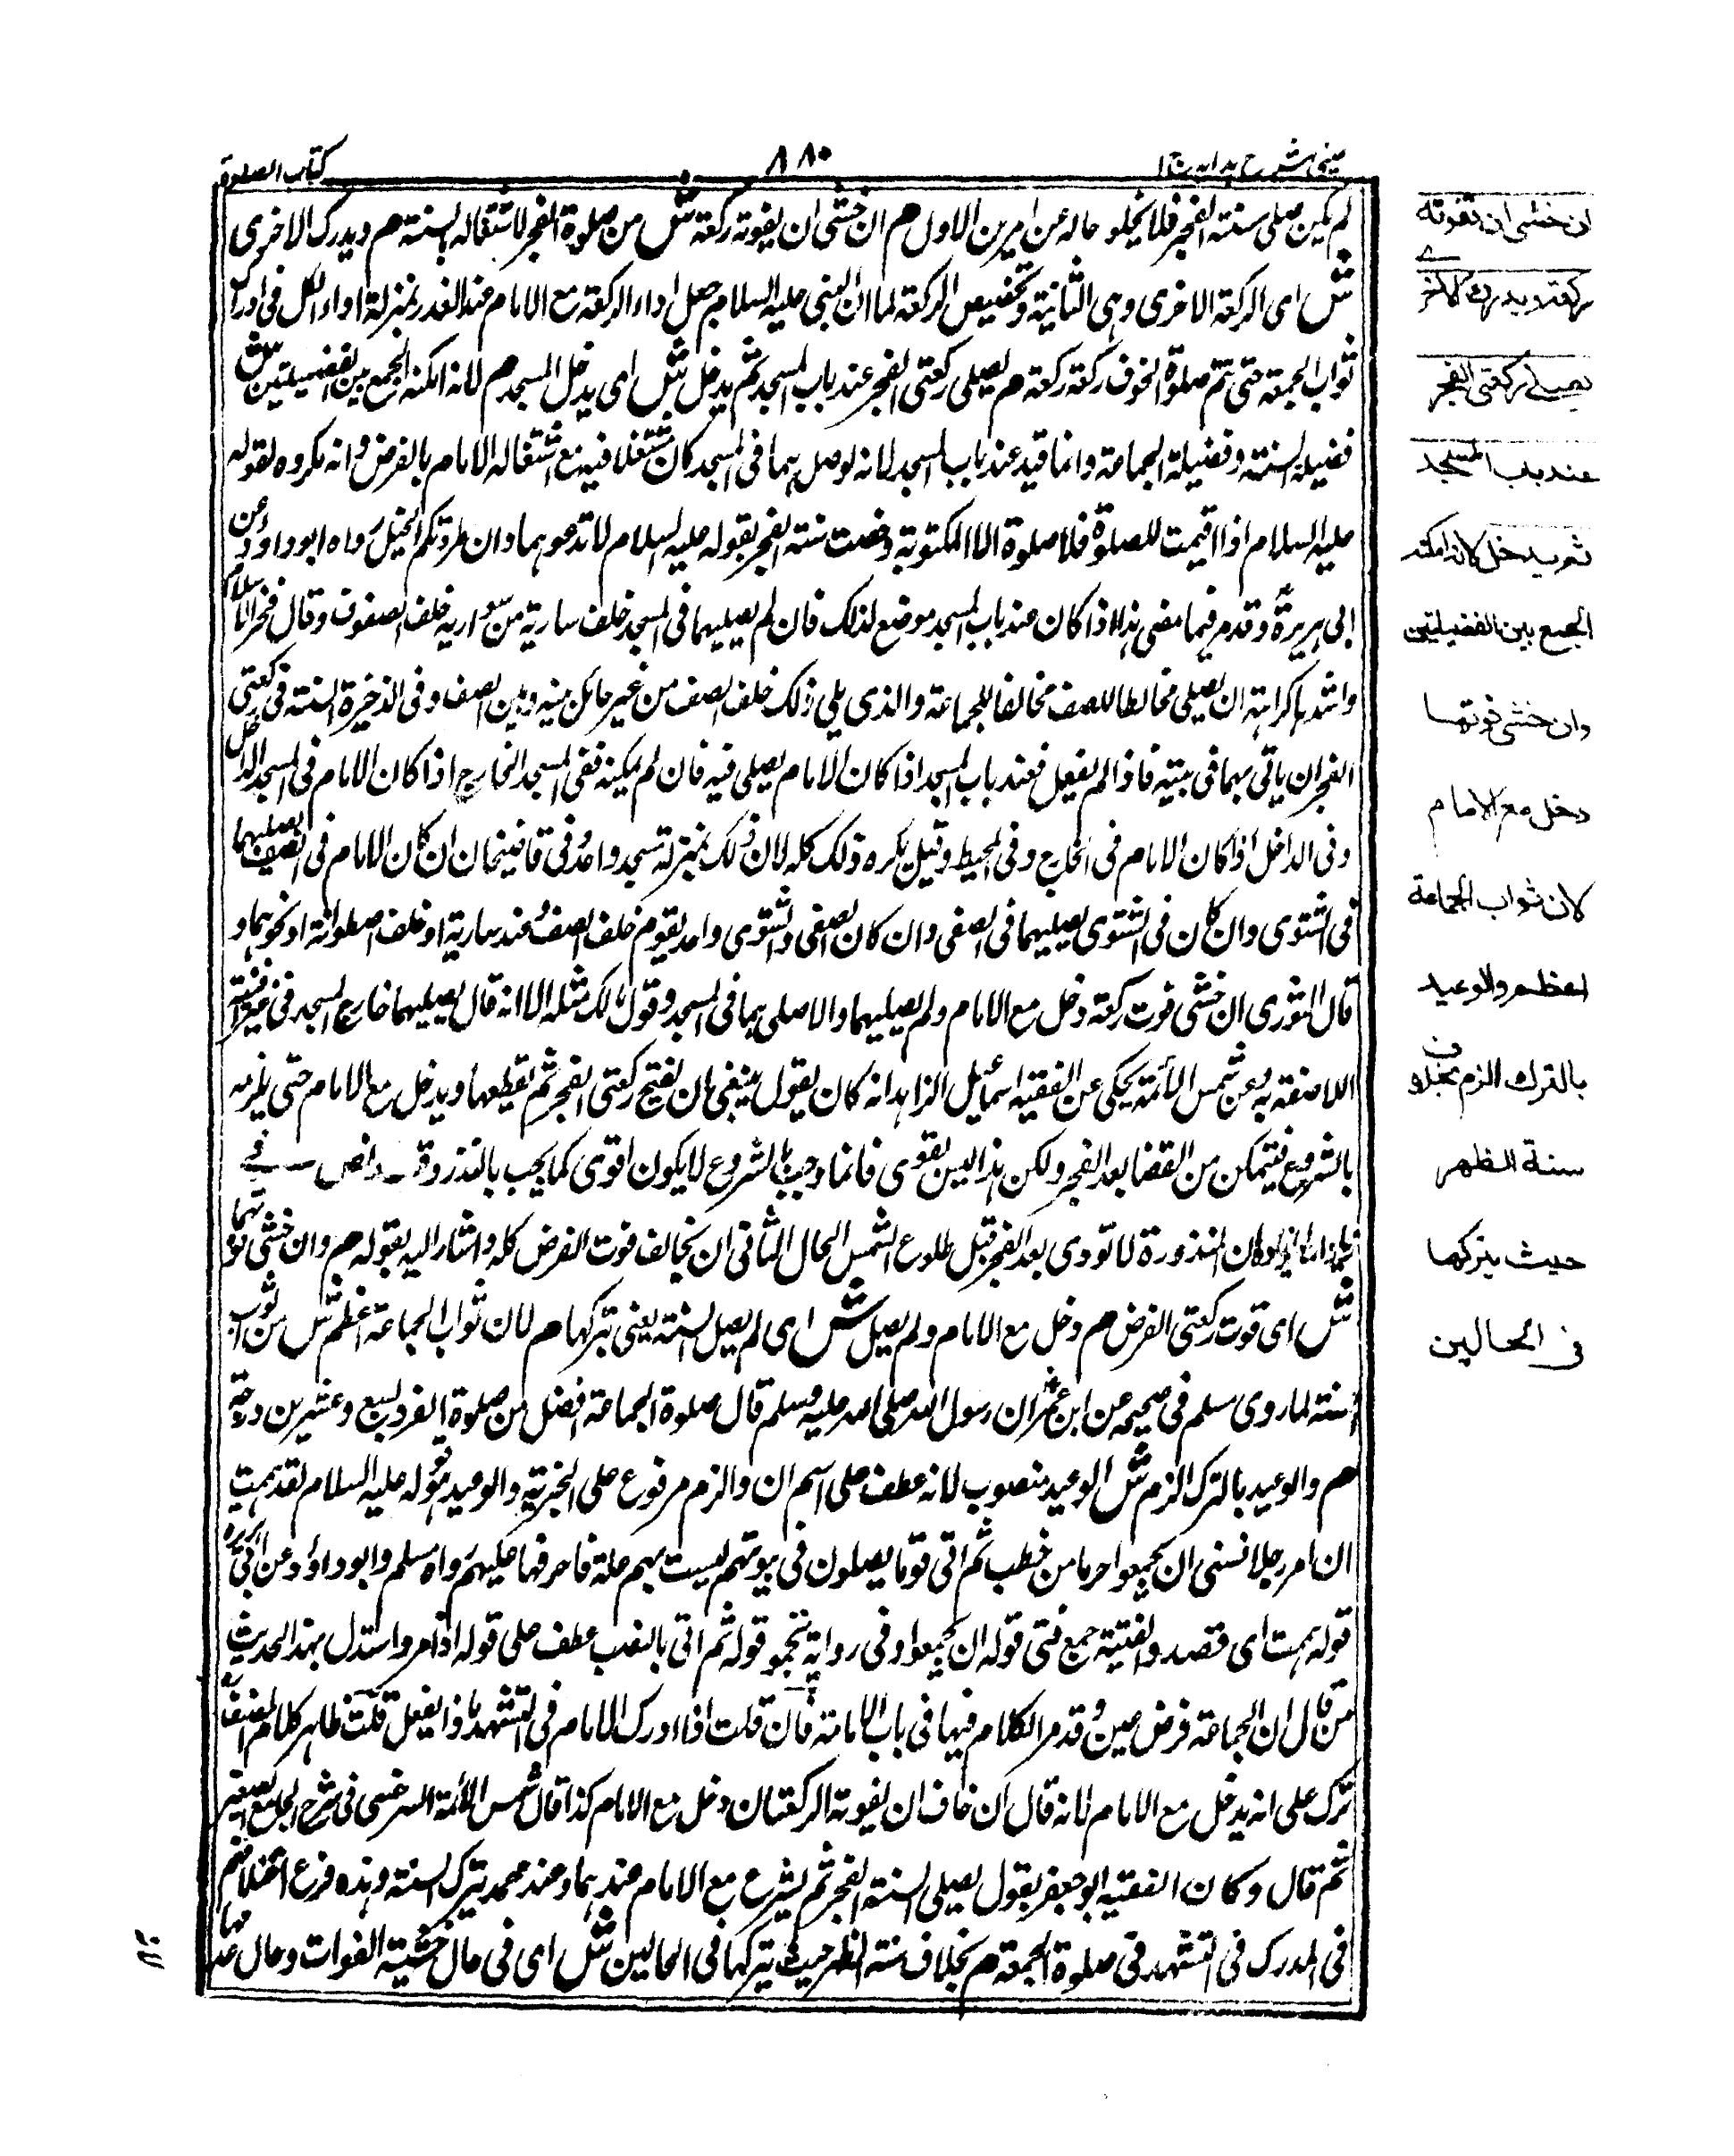 عینی شرح ہدایہ ج ۱
۸۸۰
كتاب الصلوة
لم يكن صلى سنة الفجر فلا يخلو حاله عن امرين الاول هم ان خشى ان يفوته ركعة ش من صلوة الفجر لاشتغاله بالسنة هم ويدرك الاخرى
ش اى الركعة الاخرى وهى الثانية وتخصيص الركعة لما ان النبى عليه السلام جعل اداء الركعة مع الامام عند العذر بمنزلة اداء الكل فى ادراك
ثواب الجمعة حتى تتم صلوة الخوف ركعة ركعة هم يصلى ركعتى الفجر عند باب المسجد ثم يدخل ش اى يدخل المسجد هم لانه امكنه الجمع بين الفضيلتين ش
فضيلة السنة وفضيلة الجماعة وانما قيد عند باب المسجد لانه لو صلى بهما فى المسجد كان متنفلا فيه مع اشتغاله الامام بالفرض وانه مكروه لقوله
عليه السلام اذا اقيمت للصلوة فلا صلوة الا المكتوبة وخصت سنة الفجر بقوله عليه السلام لا تدعوهما وان طردتكم الخيل رواه ابو داود عن
ابى هريرة وقد مر فيما مضى هذا اذا كان عند باب المسجد موضع لذلك فان لم يصليهما فى المسجد خلف سارية من سواريه خلف الصفوف وقال فخر الاسلام
واشدها كراهة ان يصلى مخالطا للصف مخالفا للجماعة والذى يلى ذلك خلف الصف من غير حائل بينه وبين الصف وفى الذخيرة السنة فى ركعتى
الفجر ان ياتى بهما فى بيته فاذا لم يفعل فعند باب المسجد اذا كان الامام يصلى فيه فان لم يمكنه ففى المسجد الخارج اذا كان الامام فى المسجد الداخل
وفى الداخل اذا كان الامام فى الخارج وفى المحيط وقيل يكره ذلك كله لان ذلك بمنزلة مسجد واحد وفى قاضيخان ان كان الامام فى الصيفى يصليهما
فى الشتوى وان كان فى الشتوى يصليهما فى الصيفى وان كان الصيفى والشتوى واحد يقوم خلف الصف عند سارية او خلف اصطوانة او نحوهما و
قال الثورى ان خشى فوت ركعة دخل مع الامام ولم يصليهما والا صلى بهما فى المسجد وقول مالك مثله الا انه قال يصليهما خارج المسجد فى غير افنيته
اللاصقة به وعن شمس الائمة يحكى عن الفقيه اسمائيل الزاهد انه كان يقول ينبغى ان يفتتح ركعتى الفجر ثم يقطعها ويدخل مع الامام حتى يلزمه
بالشروع فيتمكن من القضا بعد الفجر ولكن هذا ليس بقوى فانما وجب بالشروع لا يكون اقوى كما يجب بالنذر
ان المنذورة لا تودى بعد الفجر قبل طلوع الشمس الحال الثانى ان يخالف فوت الفرض كله واشار اليه بقوله هم وان خشى فوتهما
ش اى فوت ركعتى الفرض هم دخل مع الامام ولم يصل ش اى لم يصل السنة يعنى يتركها هم لان ثواب الجماعة اعظم ش من ثواب
السنة لما روى مسلم فى صحيحه عن ابن عمر ان رسول الله صلى الله عليه وسلم قال صلوة الجماعة افضل من صلوة الفرد بسبع وعشرين درجة
هم والوعيد بالترك الزم ش الوعيد منصوب لانه عطف على اسم ان والزم مرفوع على الخبرية والوعيد هو قوله عليه السلام لقد هممت
ان امر رجلا فتيتى ان يجمعوا حزما من حطب ثم اتى قوما يصلون فى بيوتهم ليست بهم علة فاحرقها عليهم رواه مسلم وابو داؤد عن ابى هريره
قوله هممت اى قصدت والفتية جمع فتى قوله ان يجمعوا وفى رواية قوله ثم اتى بالنصب عطف على قوله ان امر واستدل بهذا الحديث
من قال ان الجماعة فرض عين وقد مر الكلام فيها فى باب الامامة فان قلت اذا ادرك الامام فى التشهد ماذا يفعل قلت ظاهر كلام المصنف
ترك على انه يدخل مع الامام لانه قال ان خاف ان يفوته الركعتان دخل مع الامام كذا قال شمس الائمة السرخسى فى شرح الجامع الصغير
ثم قال وكان الفقيه ابو جعفر يقول يصلى السنة الفجر ثم يشرع مع الامام عندهما وعند محمد يترك السنة وهذه فرع اختلافهم
فى المدرك فى التشهد فى صلوة الجمعة هم بخلاف سنة الظهر حيث يتركها فى الحالين ش اى فى حال خشية الفوات وحال عدمها
ان خشى ان تفوته
ركعة ويدرك الاخرى
يصلے ركعتى الفجر
عند باب المسجد
ثم يدخل لانه امكنه
الجمع بين الفضيلتين
وان خشى فوتها
دخل مع الامام
لان ثواب الجماعة
اعظم والوعيد
بالترك الزم بخلاف
سنة الظهر
حيث يتركها
فى الحالين